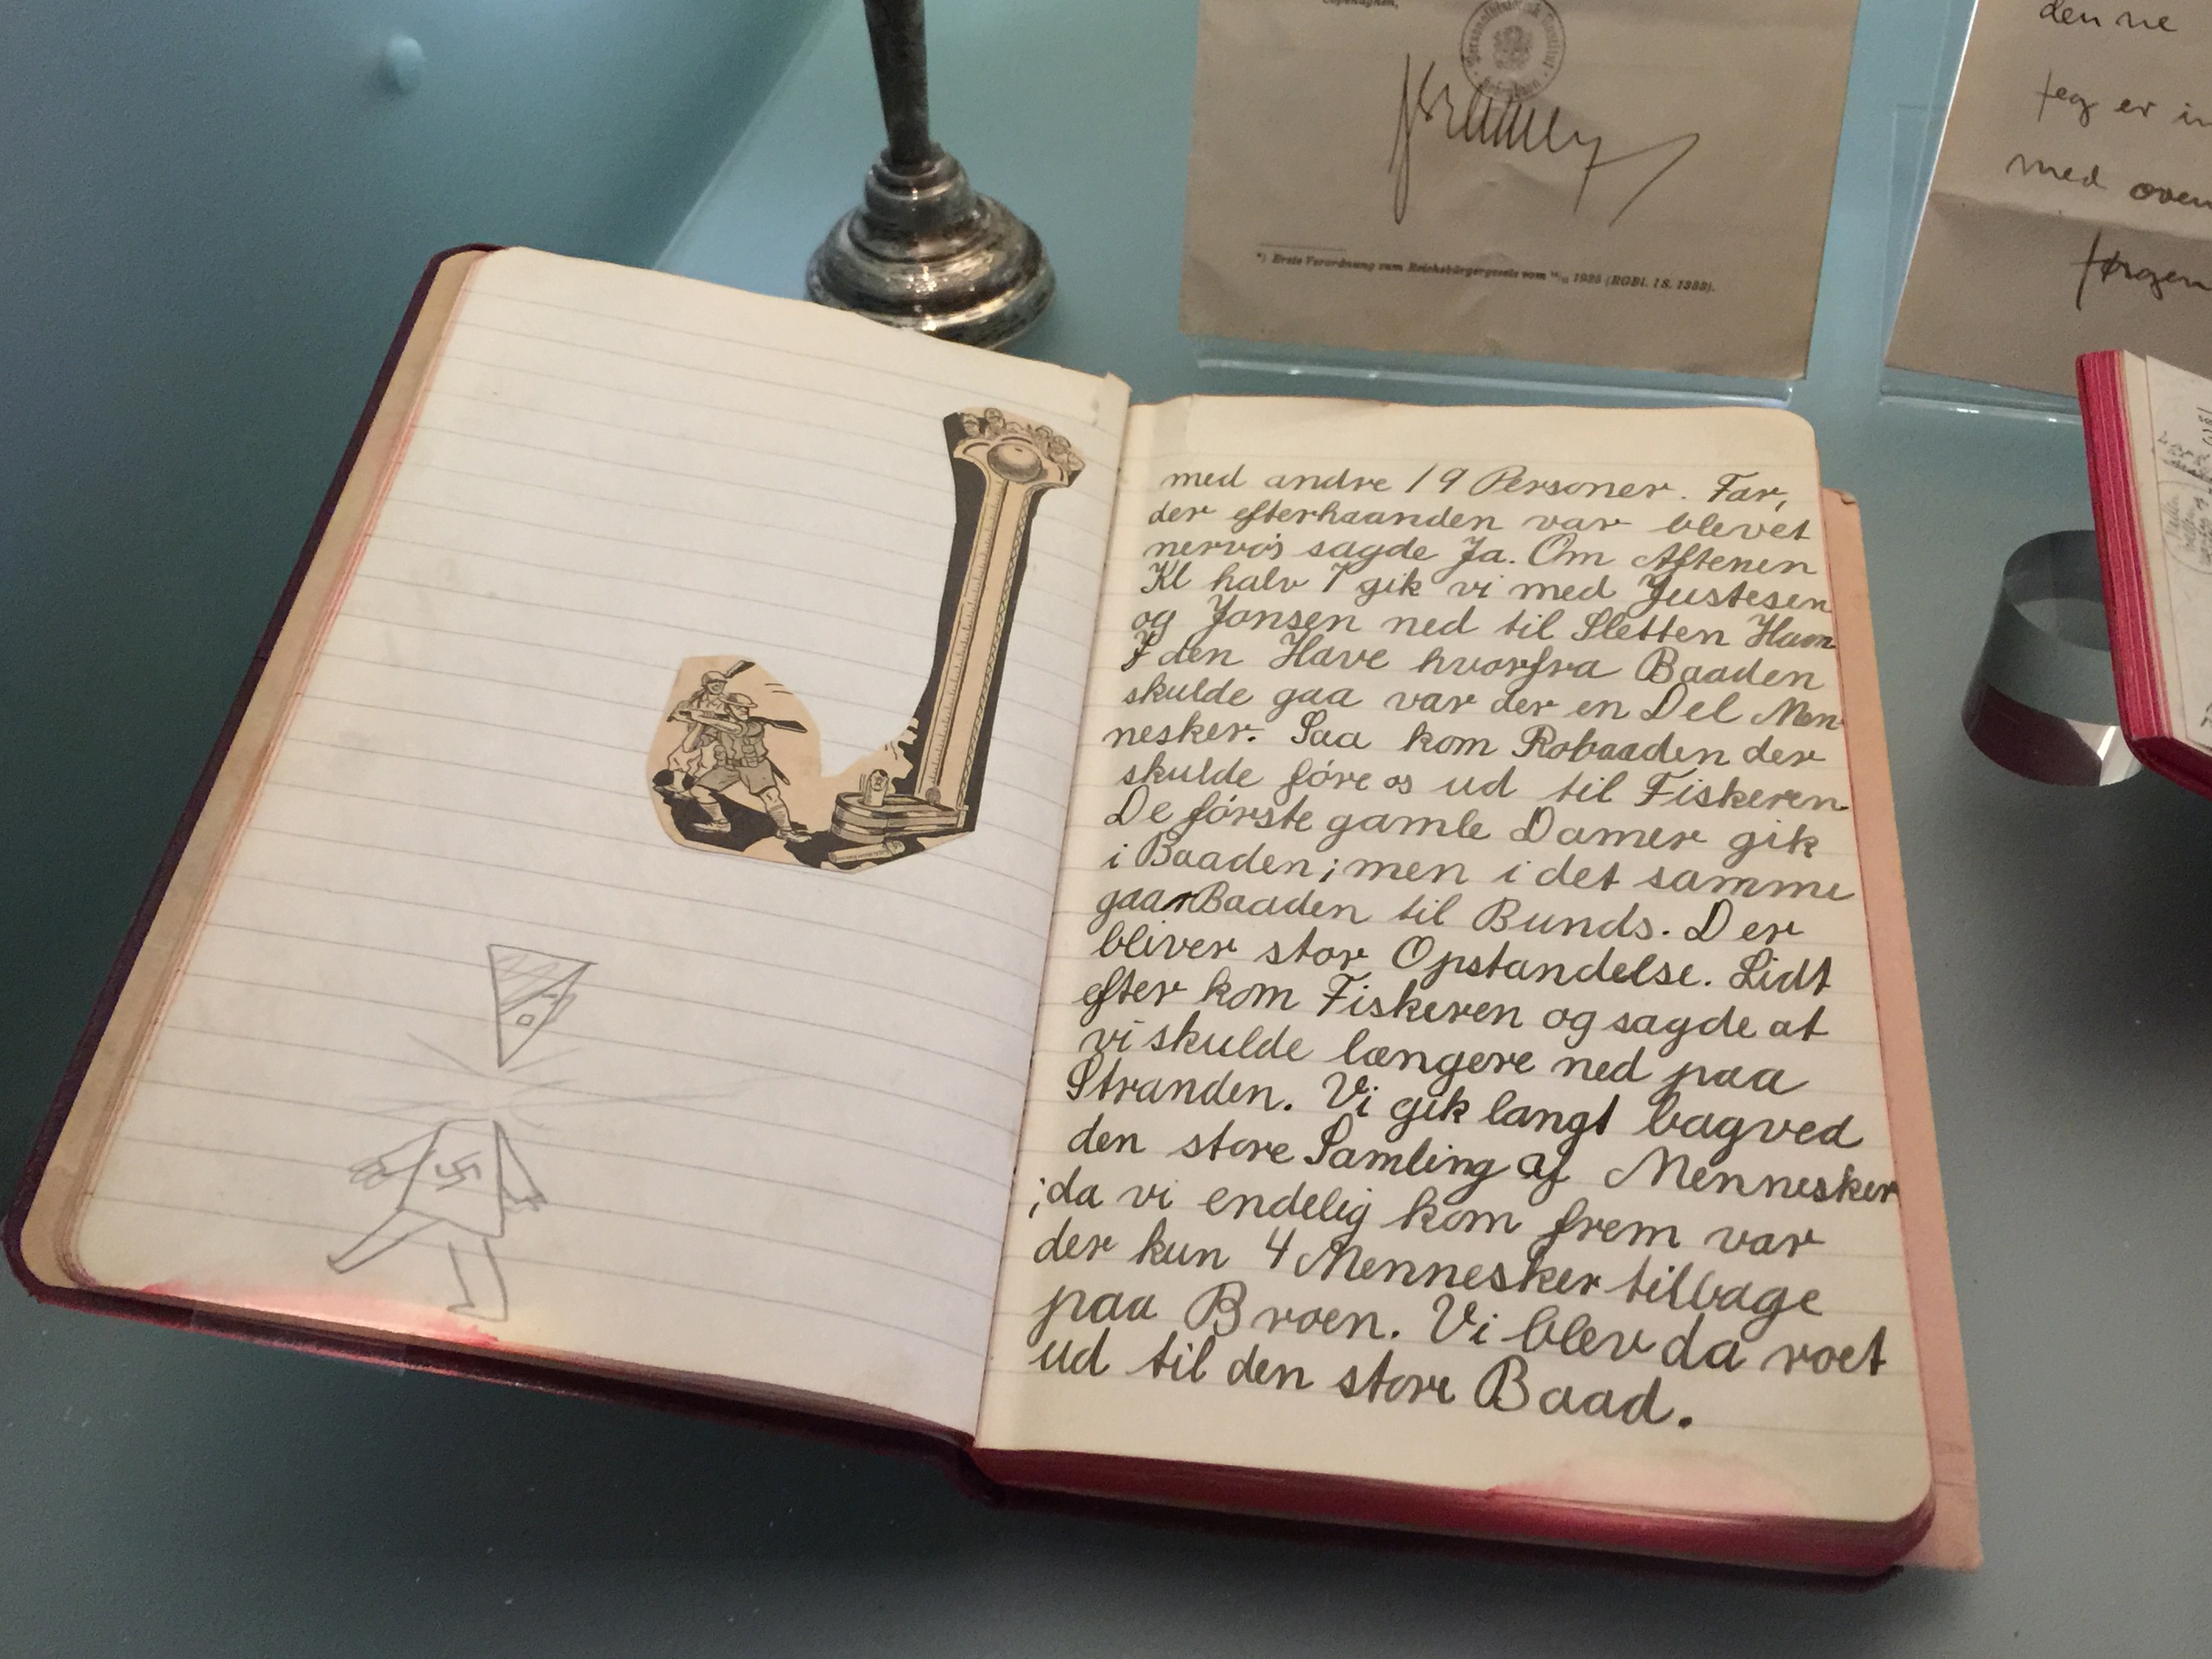 Copenhagen,
*) Erste Verordnung zum Reichsbürgergesetz vom 1935 (RGBl. I S. 1333).
den ne
Jeg er in
med oven
Jørgen
med andre 19 Personer. Far,
der efterhaanden var blevet
nervøs sagde Ja. Om Aftenen
Kl halv 7 gik vi med Justesen
og Jonsen ned til Sletten Havn
I den Have hvorfra Baaden
skulde gaa var der en Del Men
nesker. Saa kom Robaaden der
skulde føre os ud til Fiskeren
De første gamle Damer gik
i Baaden; men i det samme
gaar Baaden til Bunds. Der
bliver stor Opstandelse. Lidt
efter kom Fiskeren og sagde at
vi skulde længere ned paa
Stranden. Vi gik langt bagved
den store Samling af Mennesker
; da vi endelig kom frem var
der kun 4 Mennesker tilbage
paa Broen. Vi blev da roet
ud til den store Baad.